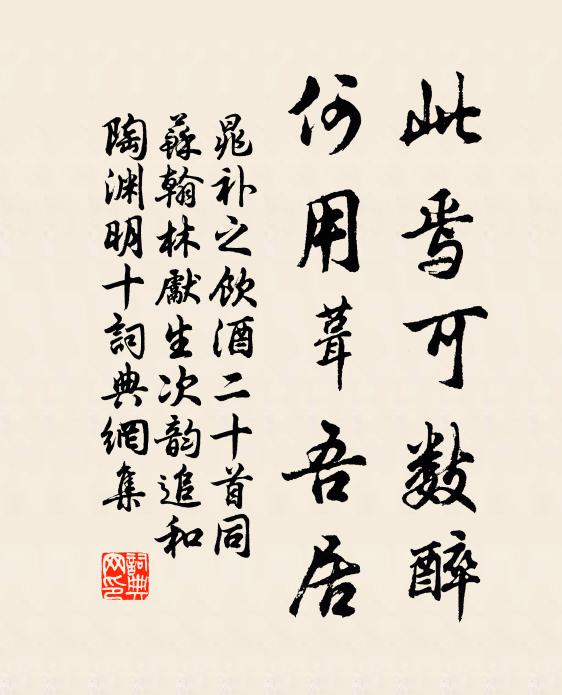 此焉可数醉
何用葺吾居
晁补之飲酒二十首同
蘇翰林獻生次韵追和
陶渊明十詞典網集
詞典网印